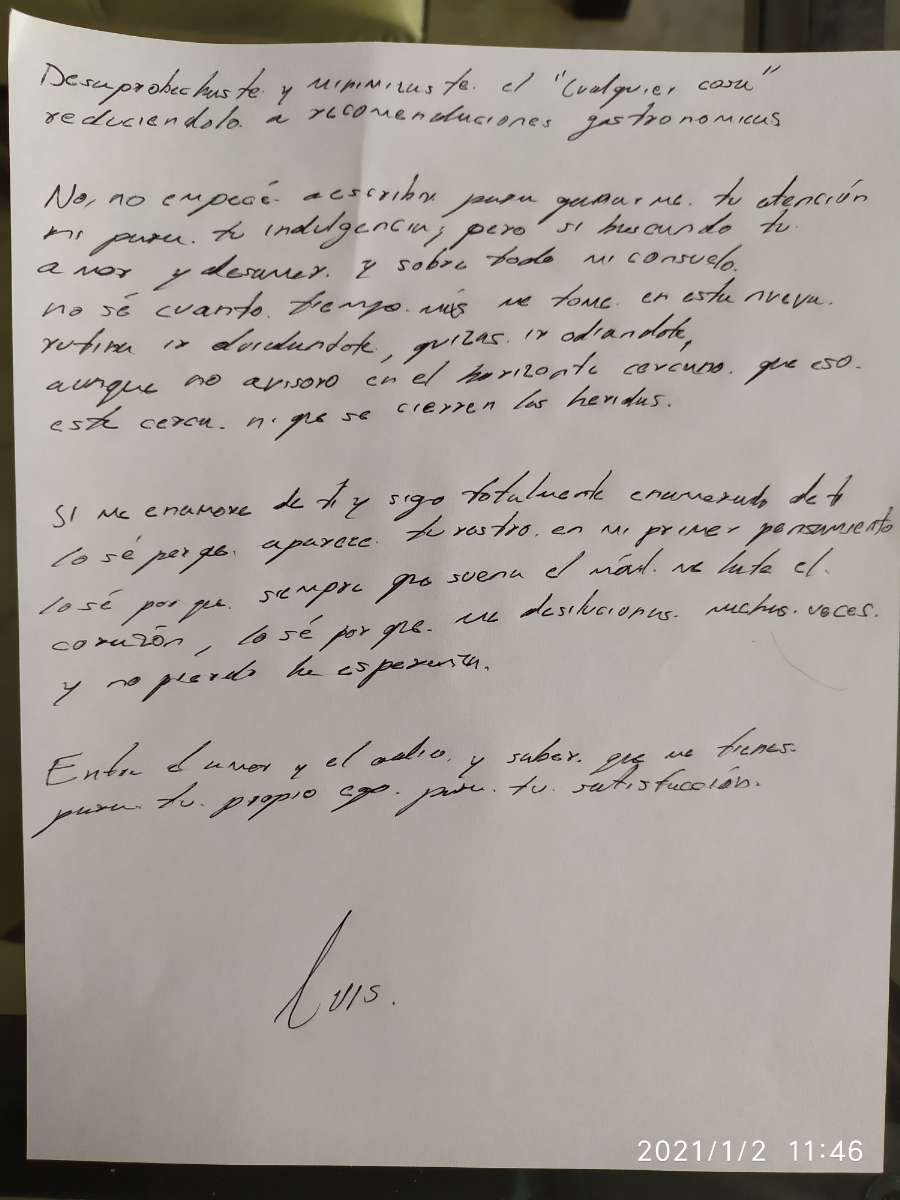 Desaprobechaste y minimizaste el "cualquier cosa"
reduciendolo a recomendaciones gastronomicas
No, no empecé a escribir para ganarme tu atención
ni para tu indulgencia, pero si buscando tu
amor y desamor y sobre todo mi consuelo.
no sé cuanto tiempo más me tome en esta nueva
rutina ir olvidandote, quizas ir odiandote,
aunque no avisoro en el horizonte cercano que eso
este cerca ni que se cierren las heridas.
SI me enamore de ti y sigo totalmente enamorado de ti
lo sé porque aparece tu rostro en mi primer pensamiento
lo sé por que siempre que suena el móvil me late el
corazón, lo sé por que me desilucionas muchas veces
y no pierdo la esperanza.
Entre el amor y el odio, y saber que me tienes
para tu propio ego para tu satisfacción.
Luis.
2021/1/2 11:46